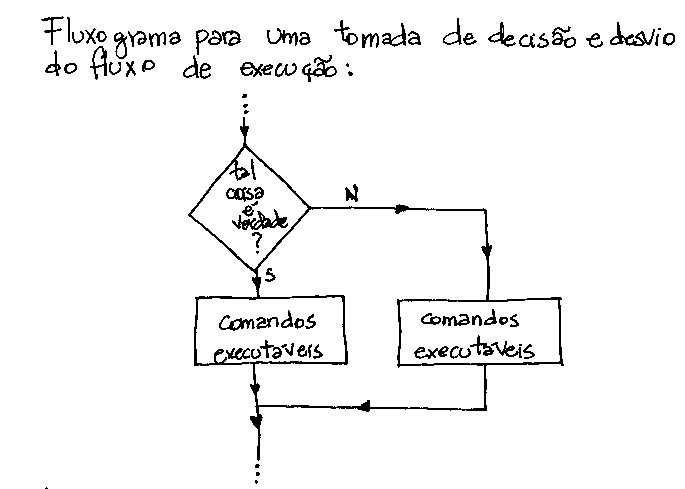 Fluxograma para uma tomada de decisão e desvio
do fluxo de execução:
tal
coisa
é
verdade
?
N
S
comandos
executáveis
comandos
executáveis